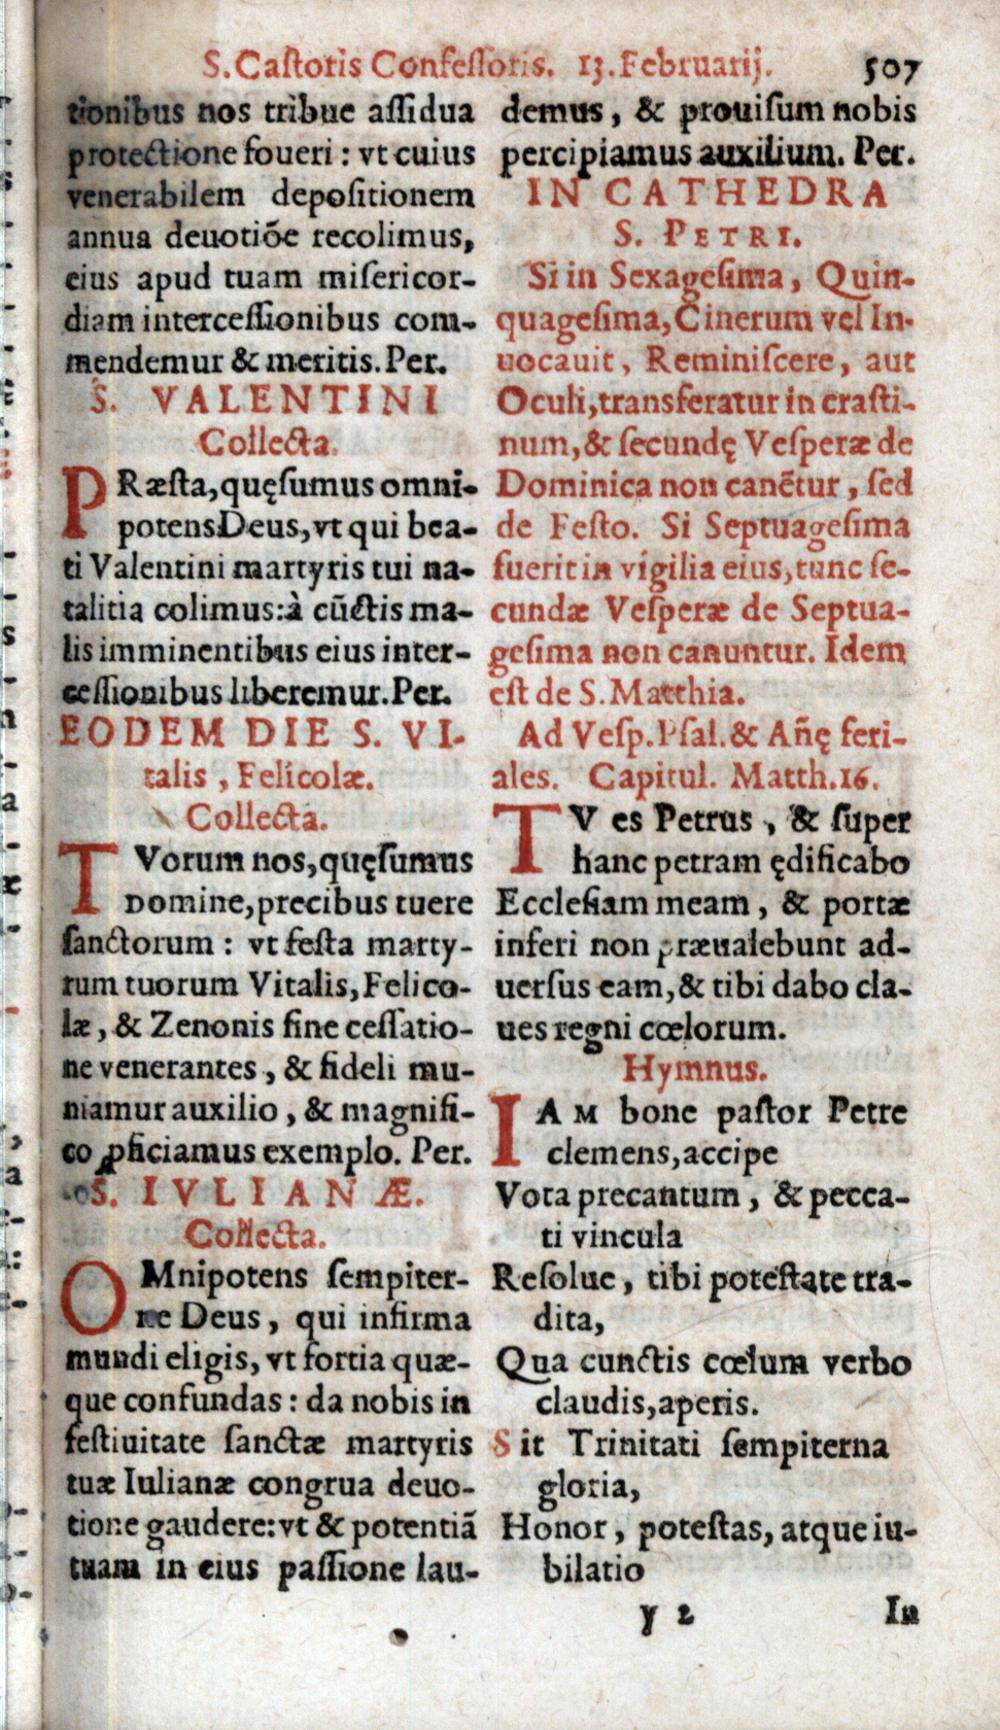 S. Castoris Confessoris. 13. Februarij. 507
tionibus nos tribue assidua
protectione foueri : vt cuius
venerabilem depositionem
annua deuotiõe recolimus,
eius apud tuam misericor-
diam intercessionibus com-
mendemur & meritis. Per.
S. VALENTINI
Collecta.
PRæsta, quęsumus omni-
potens Deus, vt qui bea-
ti Valentini martyris tui na-
talitia colimus: à cũctis ma-
lis imminentibus eius inter-
cessionibus liberemur. Per.
EODEM DIE S. VI-
talis, Felicolæ.
Collecta.
TVorum nos, quęsumus
Domine, precibus tuere
sanctorum : vt festa marty-
rum tuorum Vitalis, Felico-
læ, & Zenonis sine cessatio-
ne venerantes, & fideli mu-
niamur auxilio, & magnifi-
co ꝓficiamus exemplo. Per.
S. IVLIANÆ.
Collecta.
OMnipotens sempiter-
ne Deus, qui infirma
mundi eligis, vt fortia quæ-
que confundas : da nobis in
festiuitate sanctæ martyris
tuæ Iulianæ congrua deuo-
tione gaudere: vt & potentiã
tuam in eius passione lau-
demus, & prouisum nobis
percipiamus auxilium. Per.
IN CATHEDRA
S. PETRI.
Si in Sexagesima, Quin-
quagesima, Cinerum vel In-
uocauit, Reminiscere, aut
Oculi, transferatur in crasti-
num, & secundę Vesperæ de
Dominica non canẽtur, sed
de Festo. Si Septuagesima
fuerit in vigilia eius, tunc se-
cundæ Vesperæ de Septua-
gesima non canuntur. Idem
est de S. Matthia.
Ad Vesp. Psal. & Añę feri-
ales. Capitul. Matth. 16.
TV es Petrus, & super
hanc petram ędificabo
Ecclesiam meam, & portæ
inferi non præualebunt ad-
uersus eam, & tibi dabo cla-
ues regni cœlorum.
Hymnus.
IAM bone pastor Petre
clemens, accipe
Vota precantum, & pecca-
ti vincula
Resolue, tibi potestate tra-
dita,
Qua cunctis cœlum verbo
claudis, aperis.
Sit Trinitati sempiterna
gloria,
Honor, potestas, atque iu-
bilatio
y 2 In